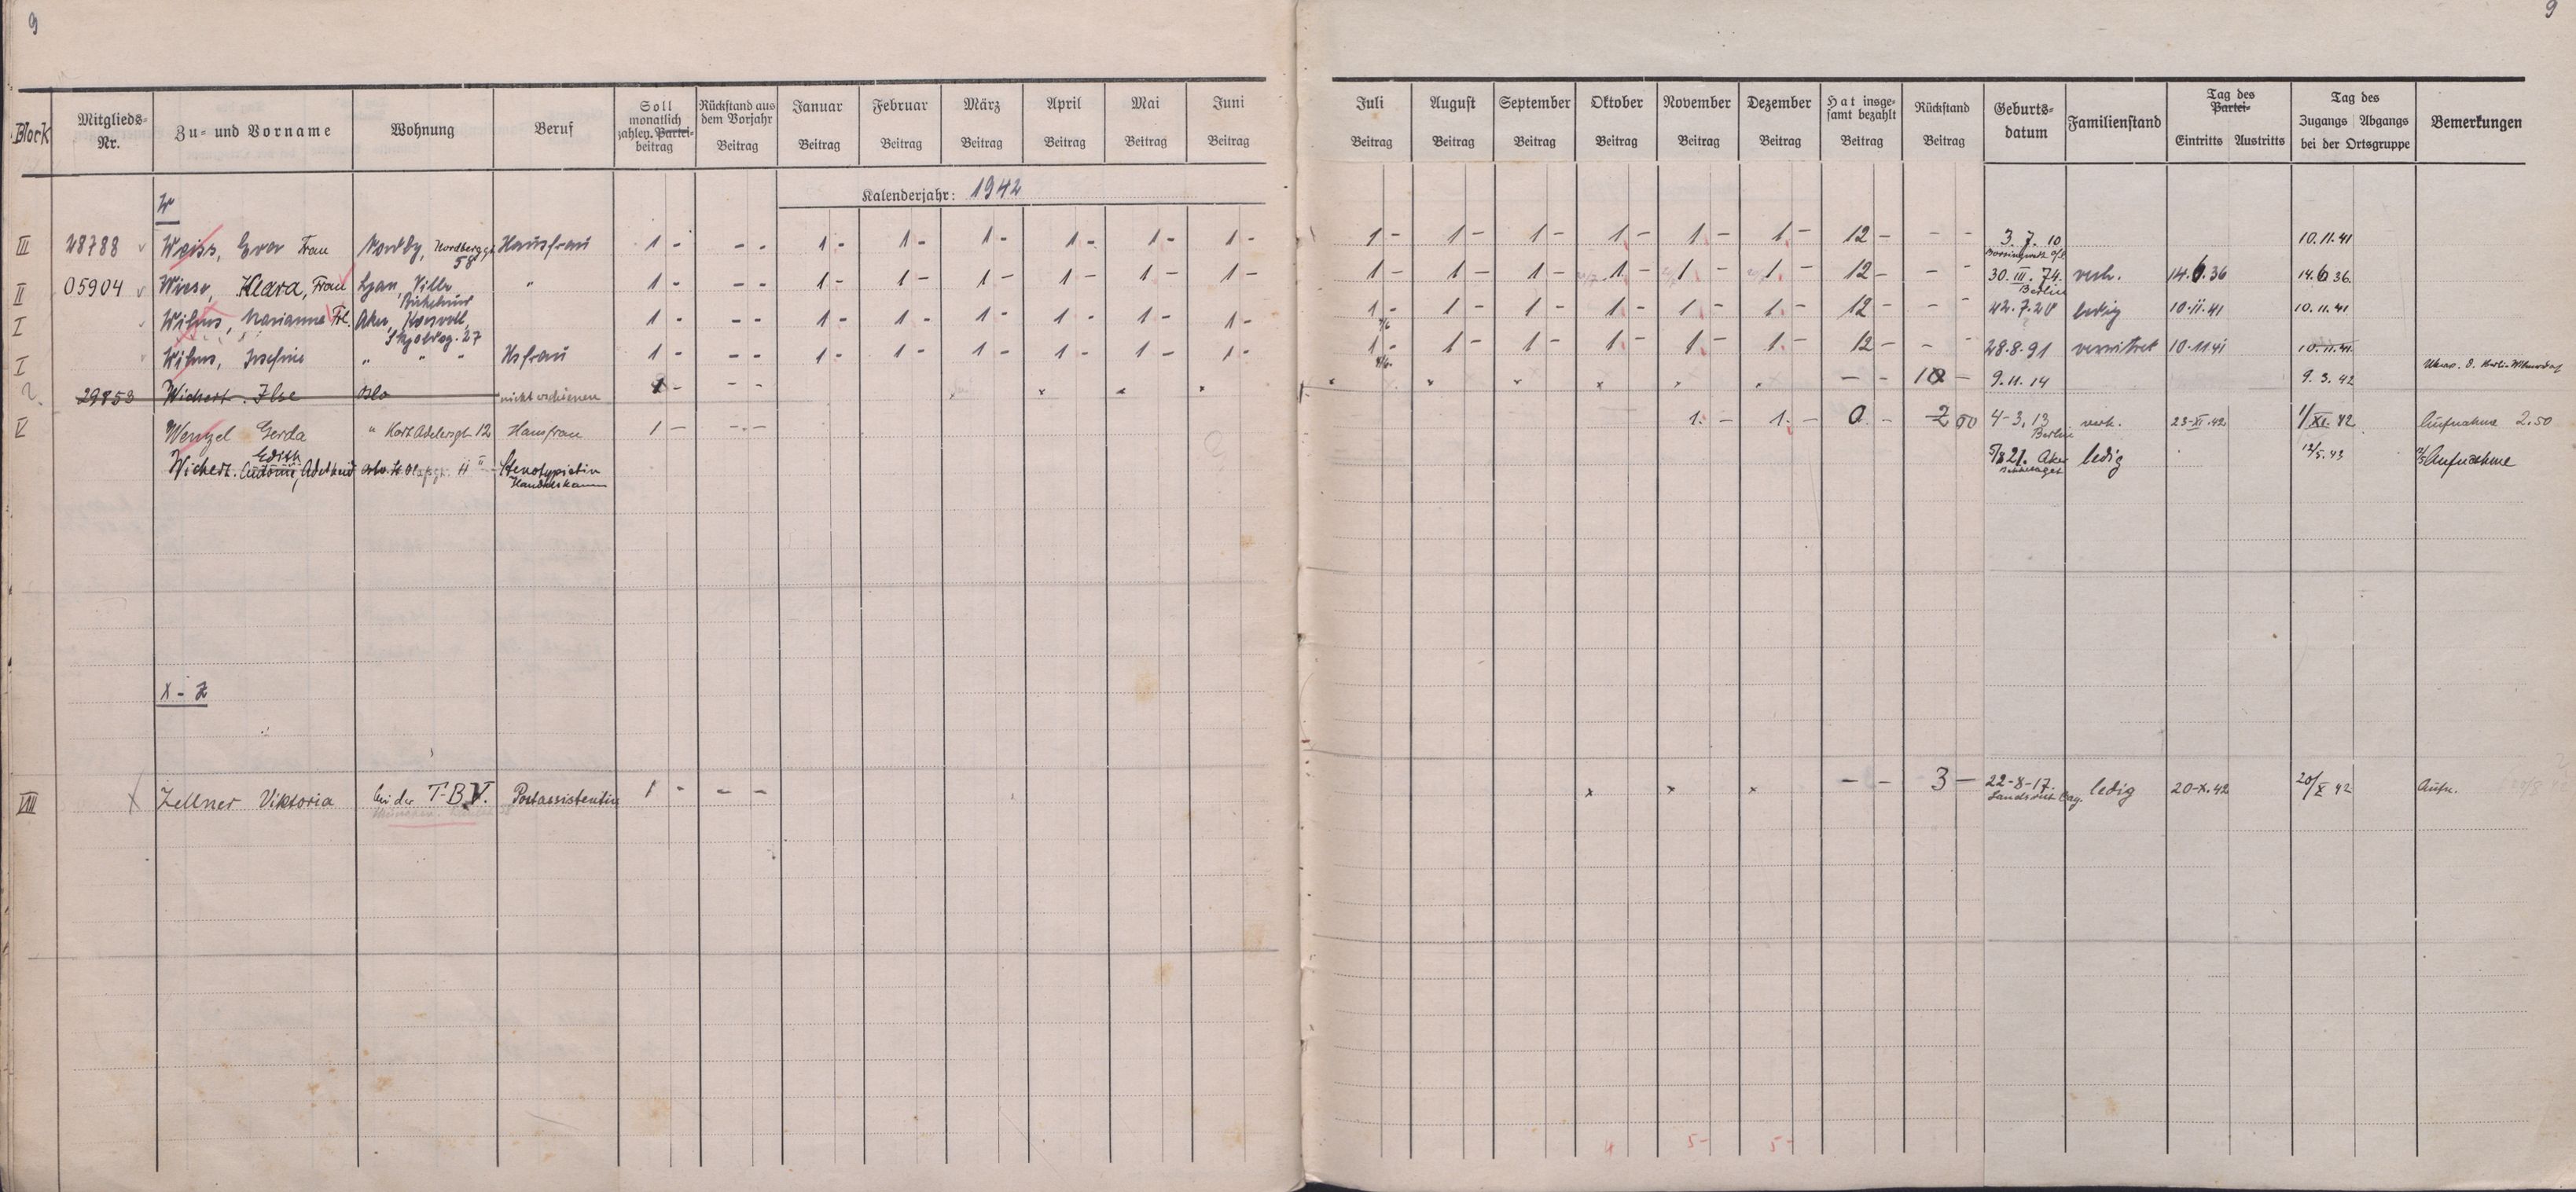 9
9
Block
Mitglieds-Nr.
Zu- und Vorname
Wohnung
Beruf
Soll monatlich zahlen Partei-beitrag
Rückstand aus dem Vorjahr Beitrag
Januar Beitrag
Februar Beitrag
März Beitrag
April Beitrag
Mai Beitrag
Juni Beitrag
Juli Beitrag
August Beitrag
September Beitrag
Oktober Beitrag
November Beitrag
Dezember Beitrag
Hat insge-samt bezahlt Beitrag
Rückstand Beitrag
Geburts-datum
Familienstand
Tag des Partei- Eintritts Austritts
Tag des Zugangs Abgangs bei der Ortsgruppe
Bemerkungen
Kalenderjahr: 1942
W
III 28788 Weiss, Frau Nordby, Nordberggt Hausfrau 1 - - - 1 - 1 - 1 - 1 - 1 - 1 - 1 - 1 - 1 - 1 - 1 - 1 - 12 - - - 3.7.10 10.11.41
58
II 05904 Wiese, Klara, Frau Ljan, Villa " 1 - - - 1 - 1 - 1 - 1 - 1 - 1 - 1 - 1 - 1 - 1 - 1 - 1 - 12 - - - 30.III.74. verh. 14.6.36 14.6.36.
Berlin
I Wilms, Marianne Frl. Aker, 1 - - - 1 - 1 - 1 - 1 - 1 - 1 - 1 - 1 - 1 - 1 - 1 - 1 - 12 - - - 22.7.20 ledig 10.11.41 10.11.41
27
I Wilms, Josefine " " " Hsfrau 1 - - - 1 - 1 - 1 - 1 - 1 - 1 - 1 - 1 - 1 - 1 - 1 - 1 - 12 - - - 28.8.91 verwitwet 10.11.41 10.11.41
29853 Wichert. Ilse Oslo nicht erschienen 1 - - - x x x x x x x x x - - 10 - 9.11.14 9.3.42
V Wenzel Gerda " Kort Adelersgt. 12 Hausfrau 1 - - - 1 - 1 - 0 - 2 50 4-3.13 verh. 23-XI.42 1/XI.42 Aufnahme 2.50
Berlin
Edith
Wichert. Adelheid Oslo. 11 Stenotypistin 5/8 21. Aker ledig 12/5.43 Aufnahme
X - Z
VIII X Zellner Viktoria bei der T-B.V. Postassistentin 1 - - - x x x - - 3 - 22-8-17. ledig 20-X.42 20/X 42 Aufn.
4 5- 5-